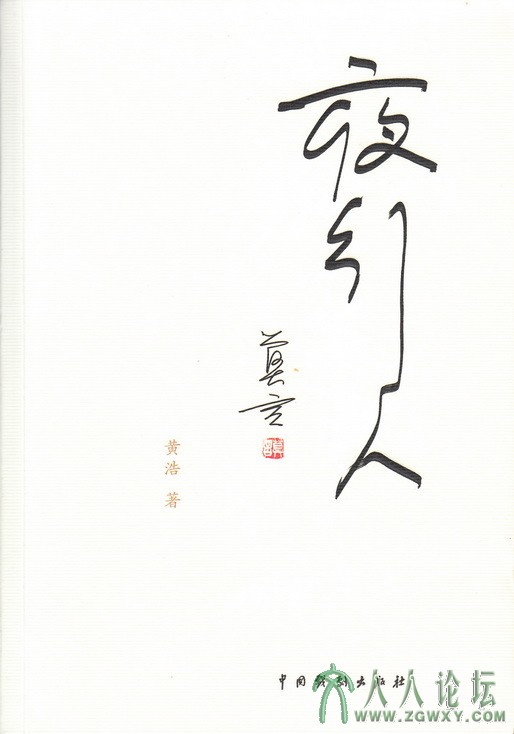 夜引人
莫言
黄浩 著
中国戏剧出版社
人人论坛
WWW.ZGWXY.COM